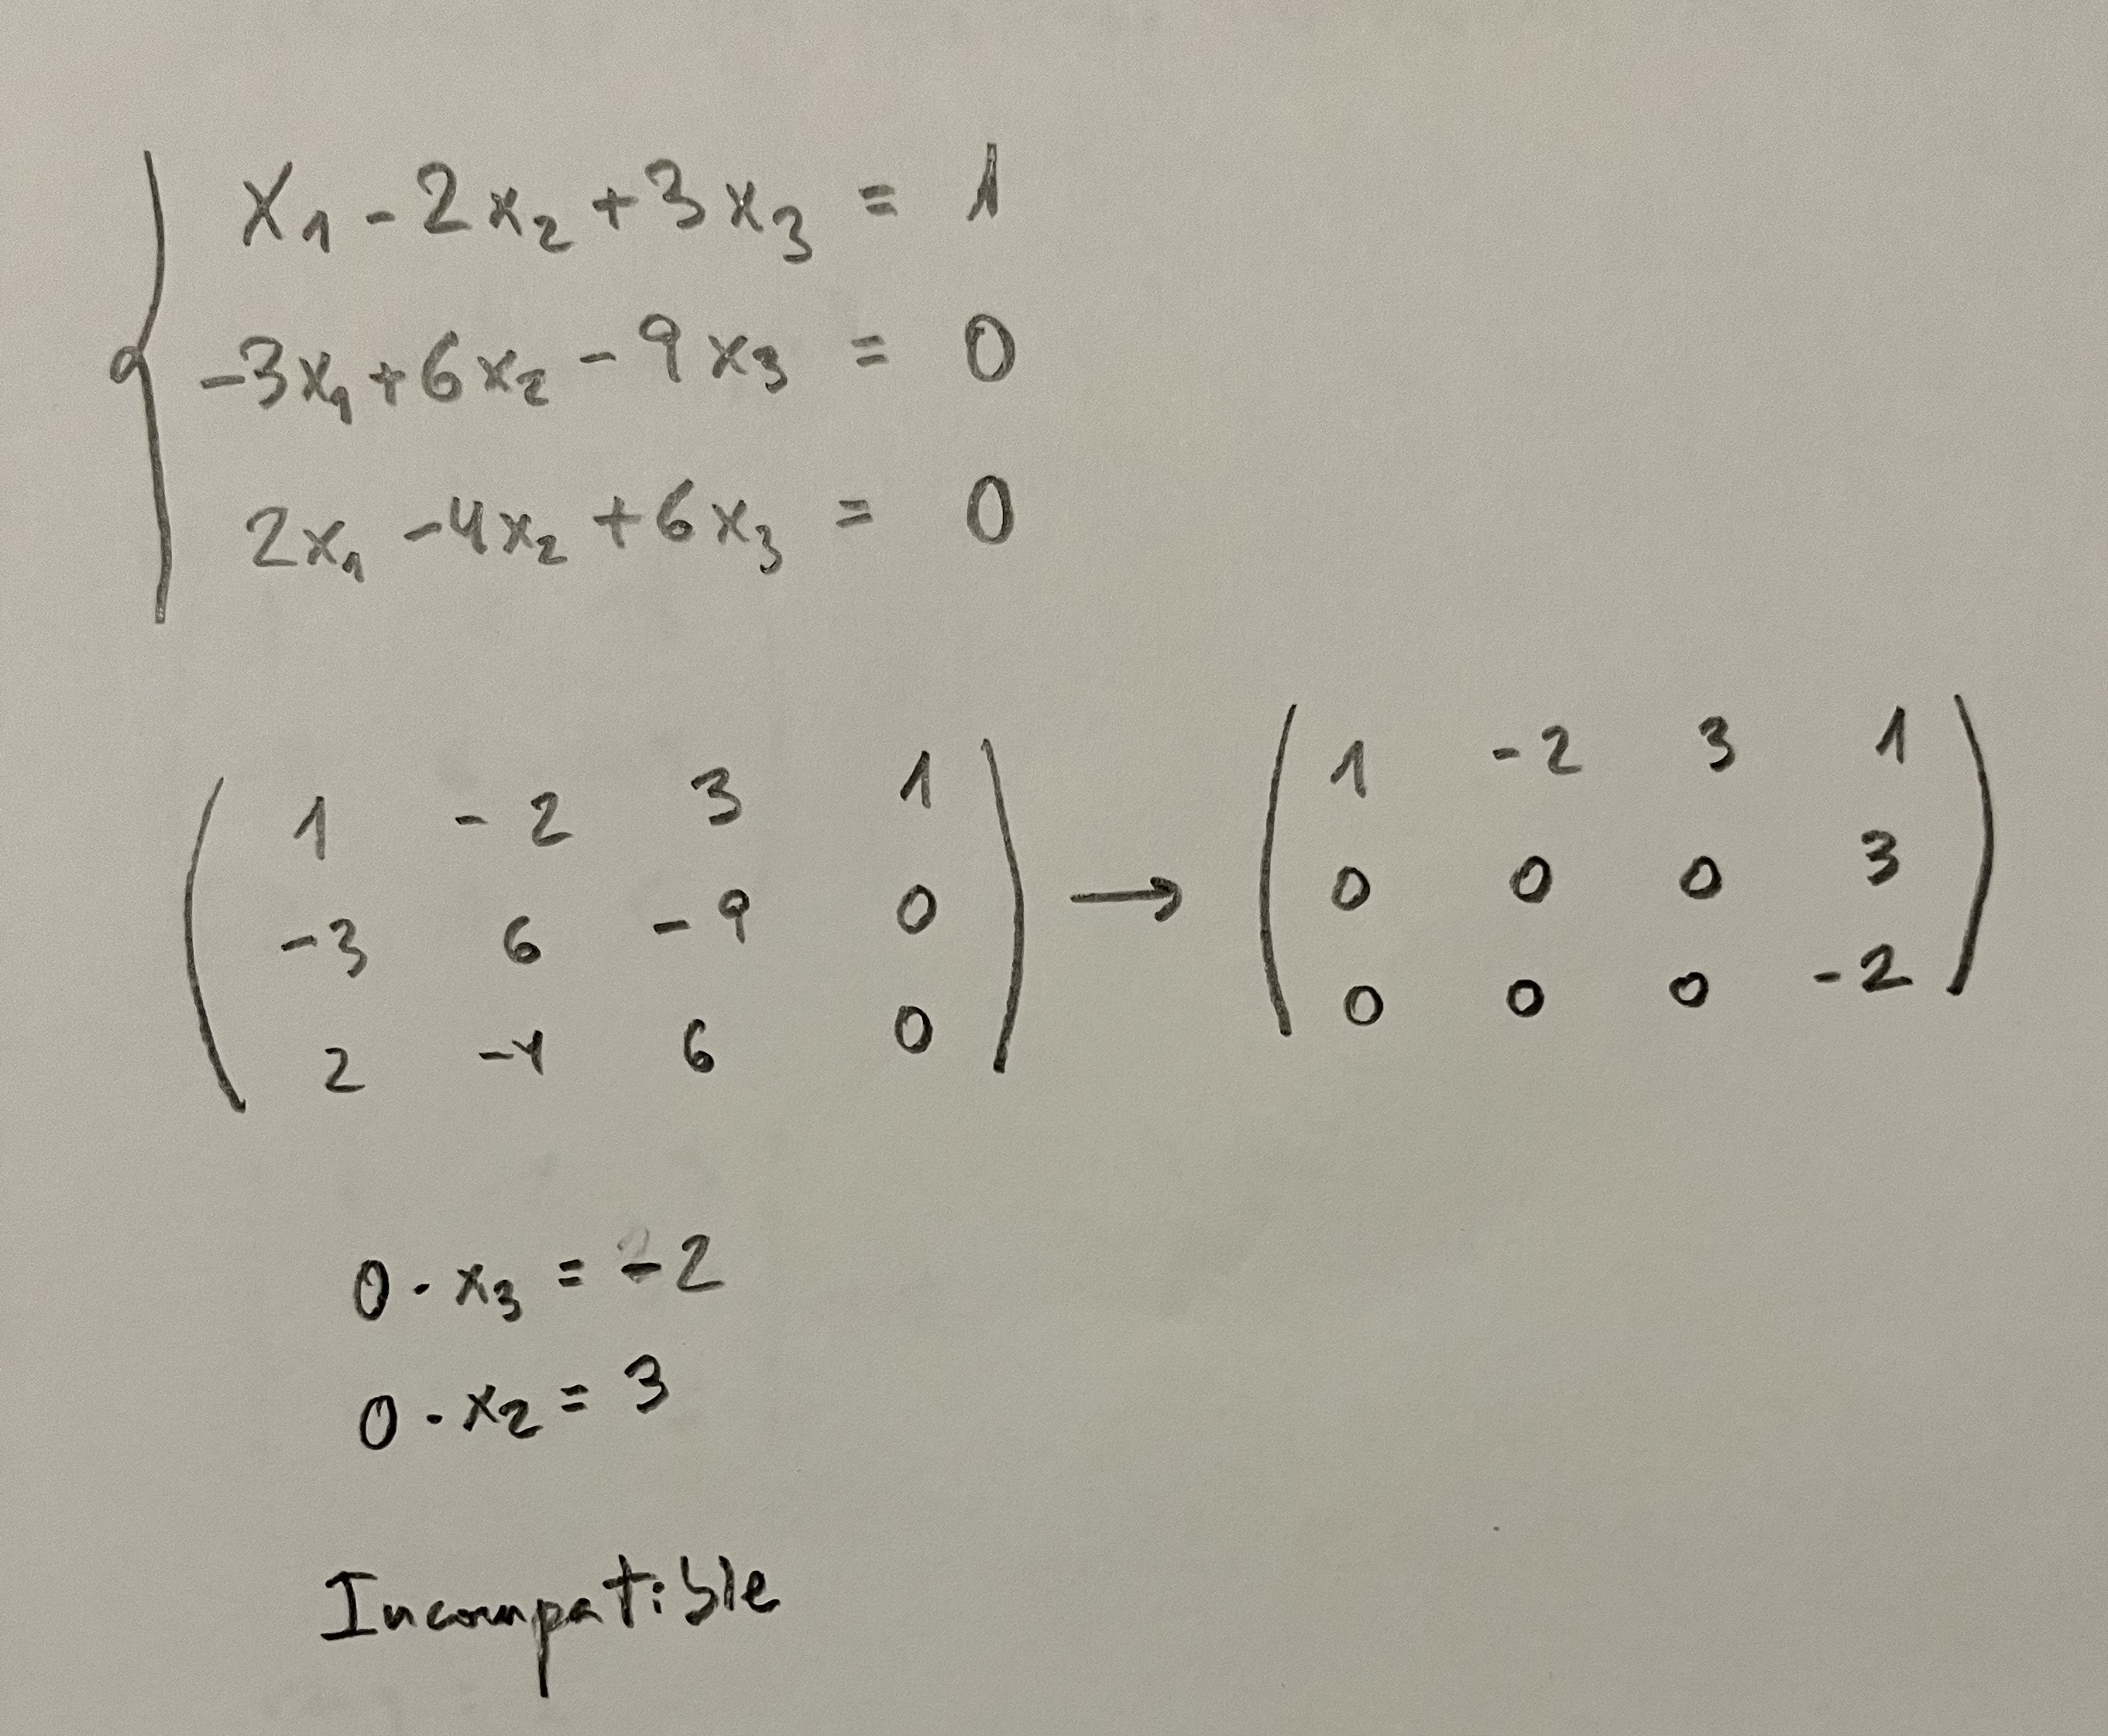 x₁ - 2x₂ + 3x₃ = 1
-3x₁ + 6x₂ - 9x₃ = 0
2x₁ - 4x₂ + 6x₃ = 0
1 -2 3 1 → 1 -2 3 1
-3 6 -9 0 0 0 0 3
2 -4 6 0 0 0 0 -2
0 · x₃ = -2
0 · x₂ = 3
Incompatible